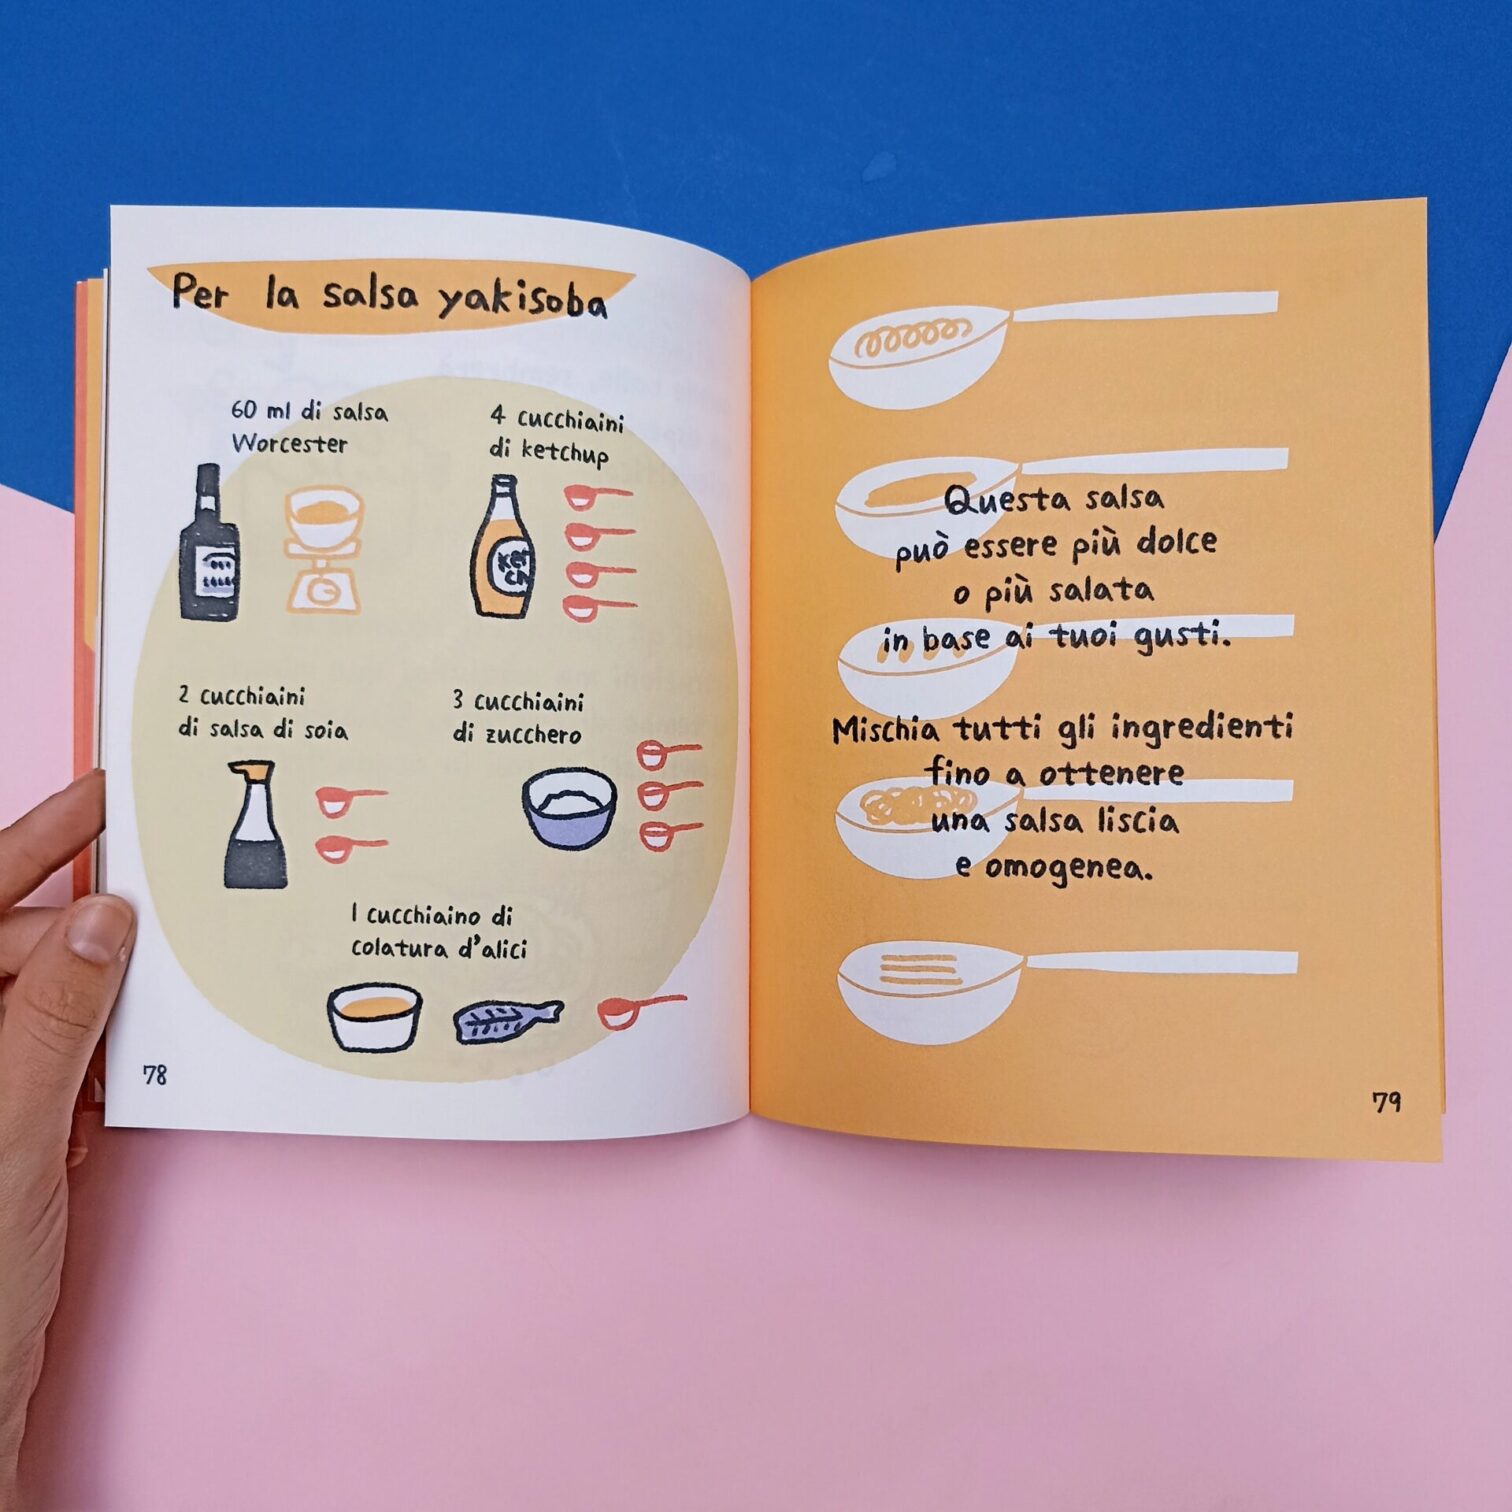 Per la salsa yakisoba
60 ml di salsa
Worcester
4 cucchiaini
di ketchup
Ket
CH
2 cucchiaini
di salsa di soia
3 cucchiaini
di zucchero
1 cucchiaino di
colatura d'alici
78
Questa salsa
può essere più dolce
o più salata
in base ai tuoi gusti.
Mischia tutti gli ingredienti
fino a ottenere
una salsa liscia
e omogenea.
79